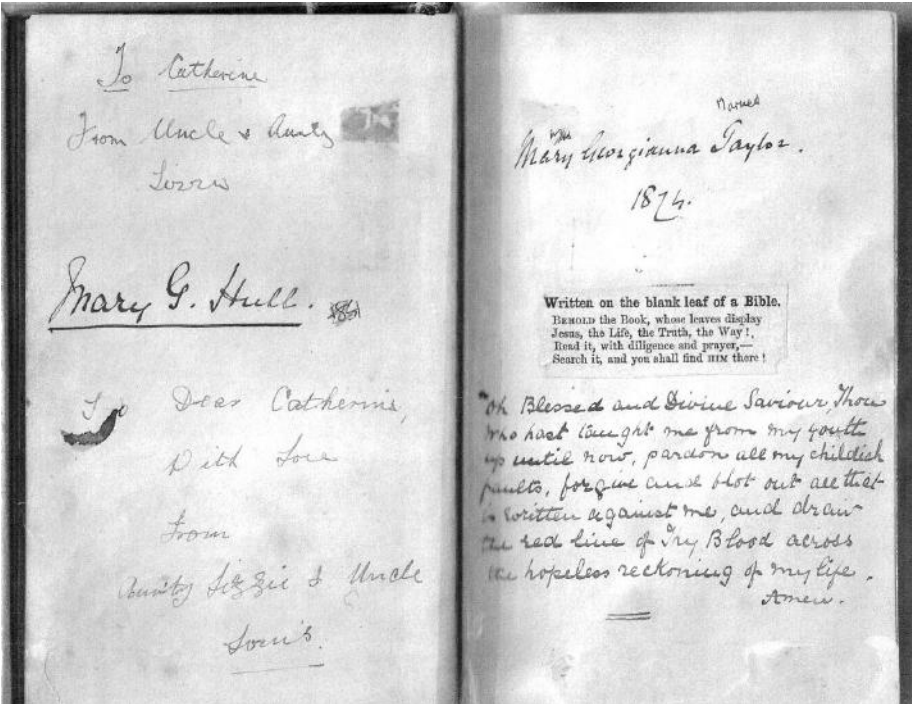 To Catherine
From Uncle & Aunty
Mary G. Hull.
To Dear Catherine,
With Love
From
Aunty Lizzie & Uncle
Mary Georgianna Taylor.
1874.
Written on the blank leaf of a Bible.
BEHOLD the Book, whose leaves display
Jesus, the Life, the Truth, the Way!
Read it, with diligence and prayer,—
Search it, and you shall find HIM there!
"Oh Blessed and Divine Saviour, Thou
who hast taught me from my youth
up until now, pardon all my childish
faults, forgive and blot out all that
is written against me, and draw
the red line of Thy Blood across
the hopeless reckoning of my life.
Amen.